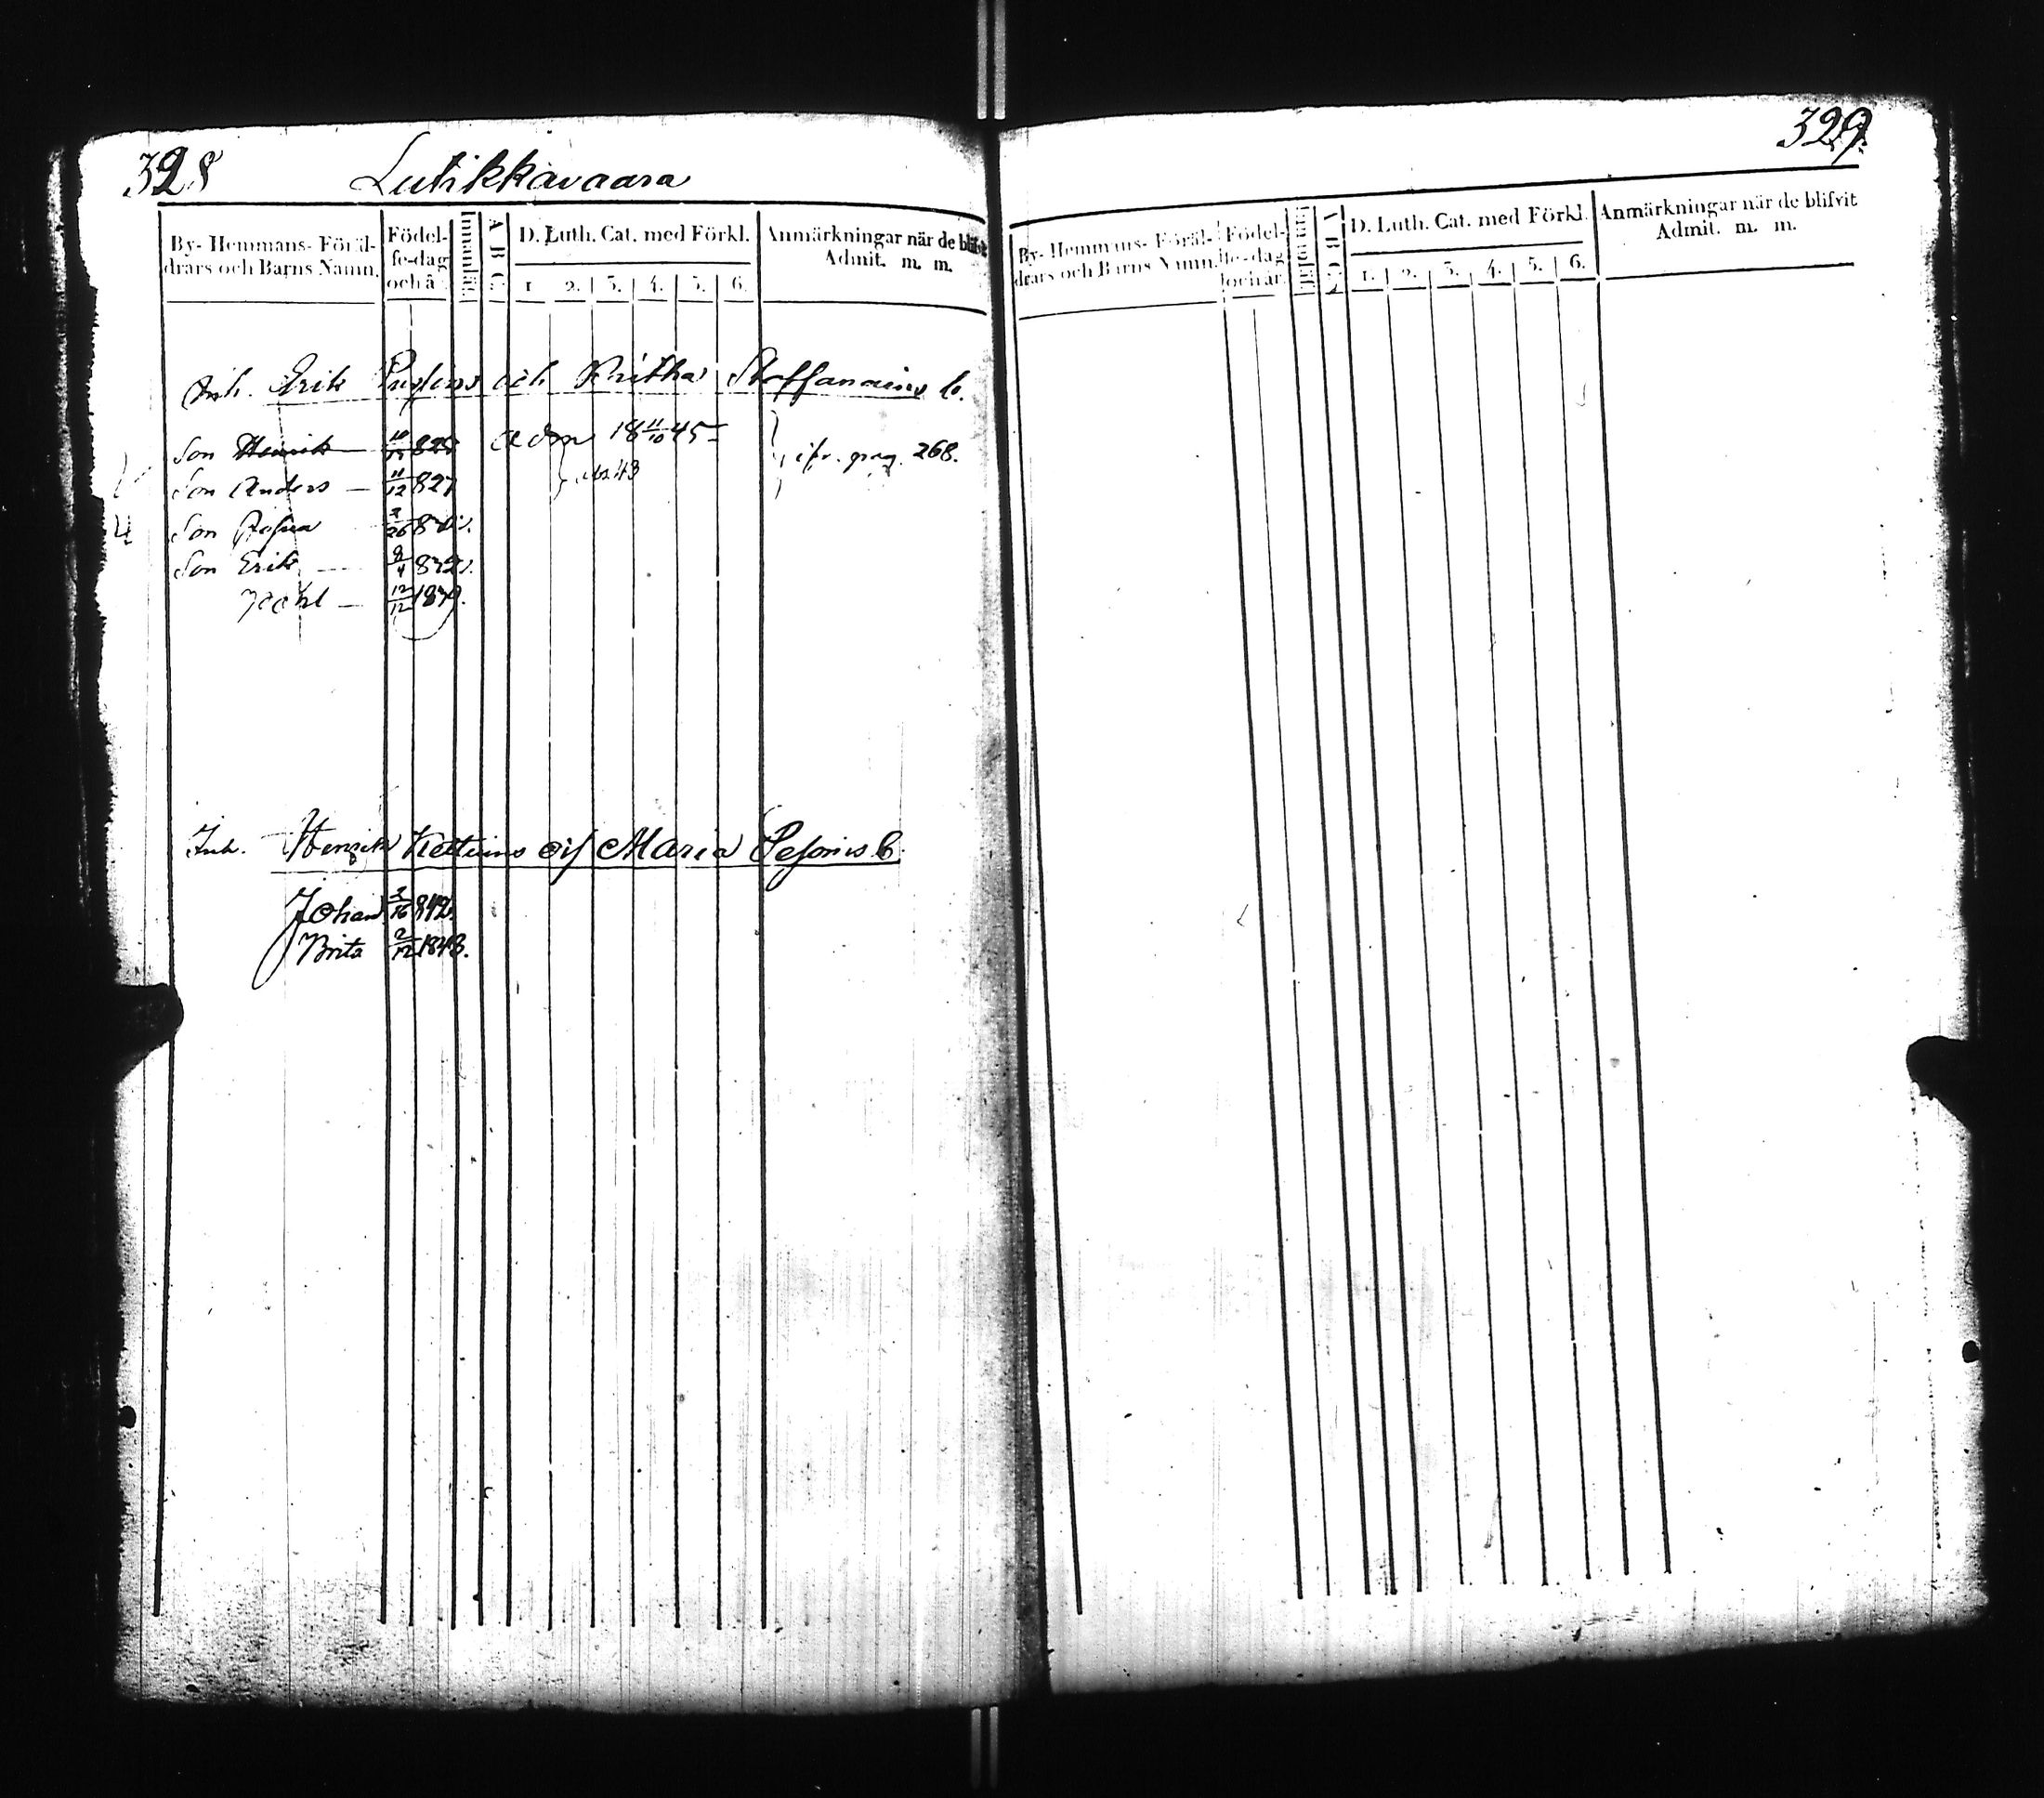 328
Lutikkavaara
By- Hemmans- Föräl-
drars och Barns Namn.
Födel-
se-dag
och å
Innanläs.
A B C
D. Luth. Cat. med Förkl.
1 2. 3. 4. 5. 6.
Anmärkningar när de blifvit
Admit. m. m.
Inh. Erik och Britha Staffanains b.
Son Henrik — 825 adm 18 11/10 45
Son Anders — 11/12 827
pag. 268.
Son
Son Erik — 832.
12/12 18
Inh. Henrik Kettuins o/ Maria Pesonis b.
Johan 842.
Brita 2/12 1843.
329.
By- Hemmans- Föräl-
drars och Barns Namn.
Födel-
se-dag
och år.
Innanläs.
A B C
D. Luth. Cat. med Förkl.
1. 2. 3. 4. 5. 6.
Anmärkningar när de blifvit
Admit. m. m.